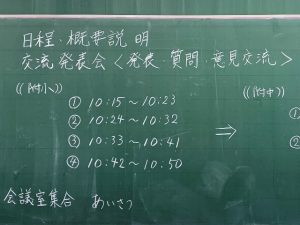 日程・概要説明
交流発表会<発表・質問・意見交流>
((附小))
((附中))
① 10:15～10:23
② 10:24～10:32
③ 10:33～10:41
④ 10:42～10:50
⇒
①
②
会議室集合 あいさつ